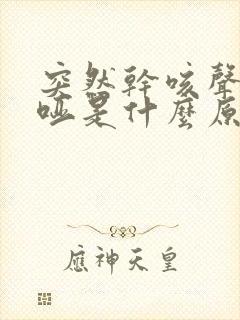 突然幹咳聲
啞是什麼原
應神天皇